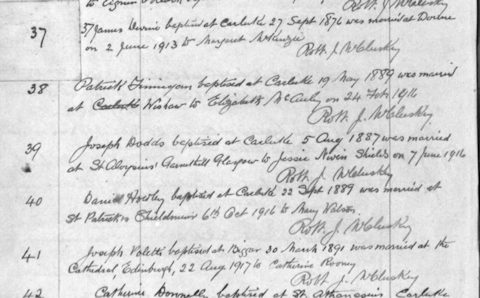 Robt. J. McCluskey
37
37 James Durnie baptised at Carluke 27 Sept 1876 was married at
on 2 June 1913 to Margaret McKenzie
Robt. J. McCluskey
38
Patrick Finnigan baptised at Carluke 19 May 1889 was married
at Carluke Wishaw to Elizabeth McAuley on 24 Feb 1916
Robt. J. McCluskey
39
Joseph Dodds baptised at Carluke 5 Aug 1887 was married
at St Aloysius' Garnethill Glasgow to Jessie Niven Shields on 7 June 1916
Robt. J. McCluskey
40
Daniel Howley baptised at Carluke 22 Sept 1889 was married at
St Patrick's Shieldmuir 6th Oct 1916 to Mary
Robt. J. McCluskey
41
Joseph Valetti baptised at Biggar 30 March 1891 was married at the
Cathedral, Edinburgh, 22 Aug 1917 to Catherine Rooney
Robt. J. McCluskey
42
Catherine Donnelly baptised at St. Athanasius Carluke